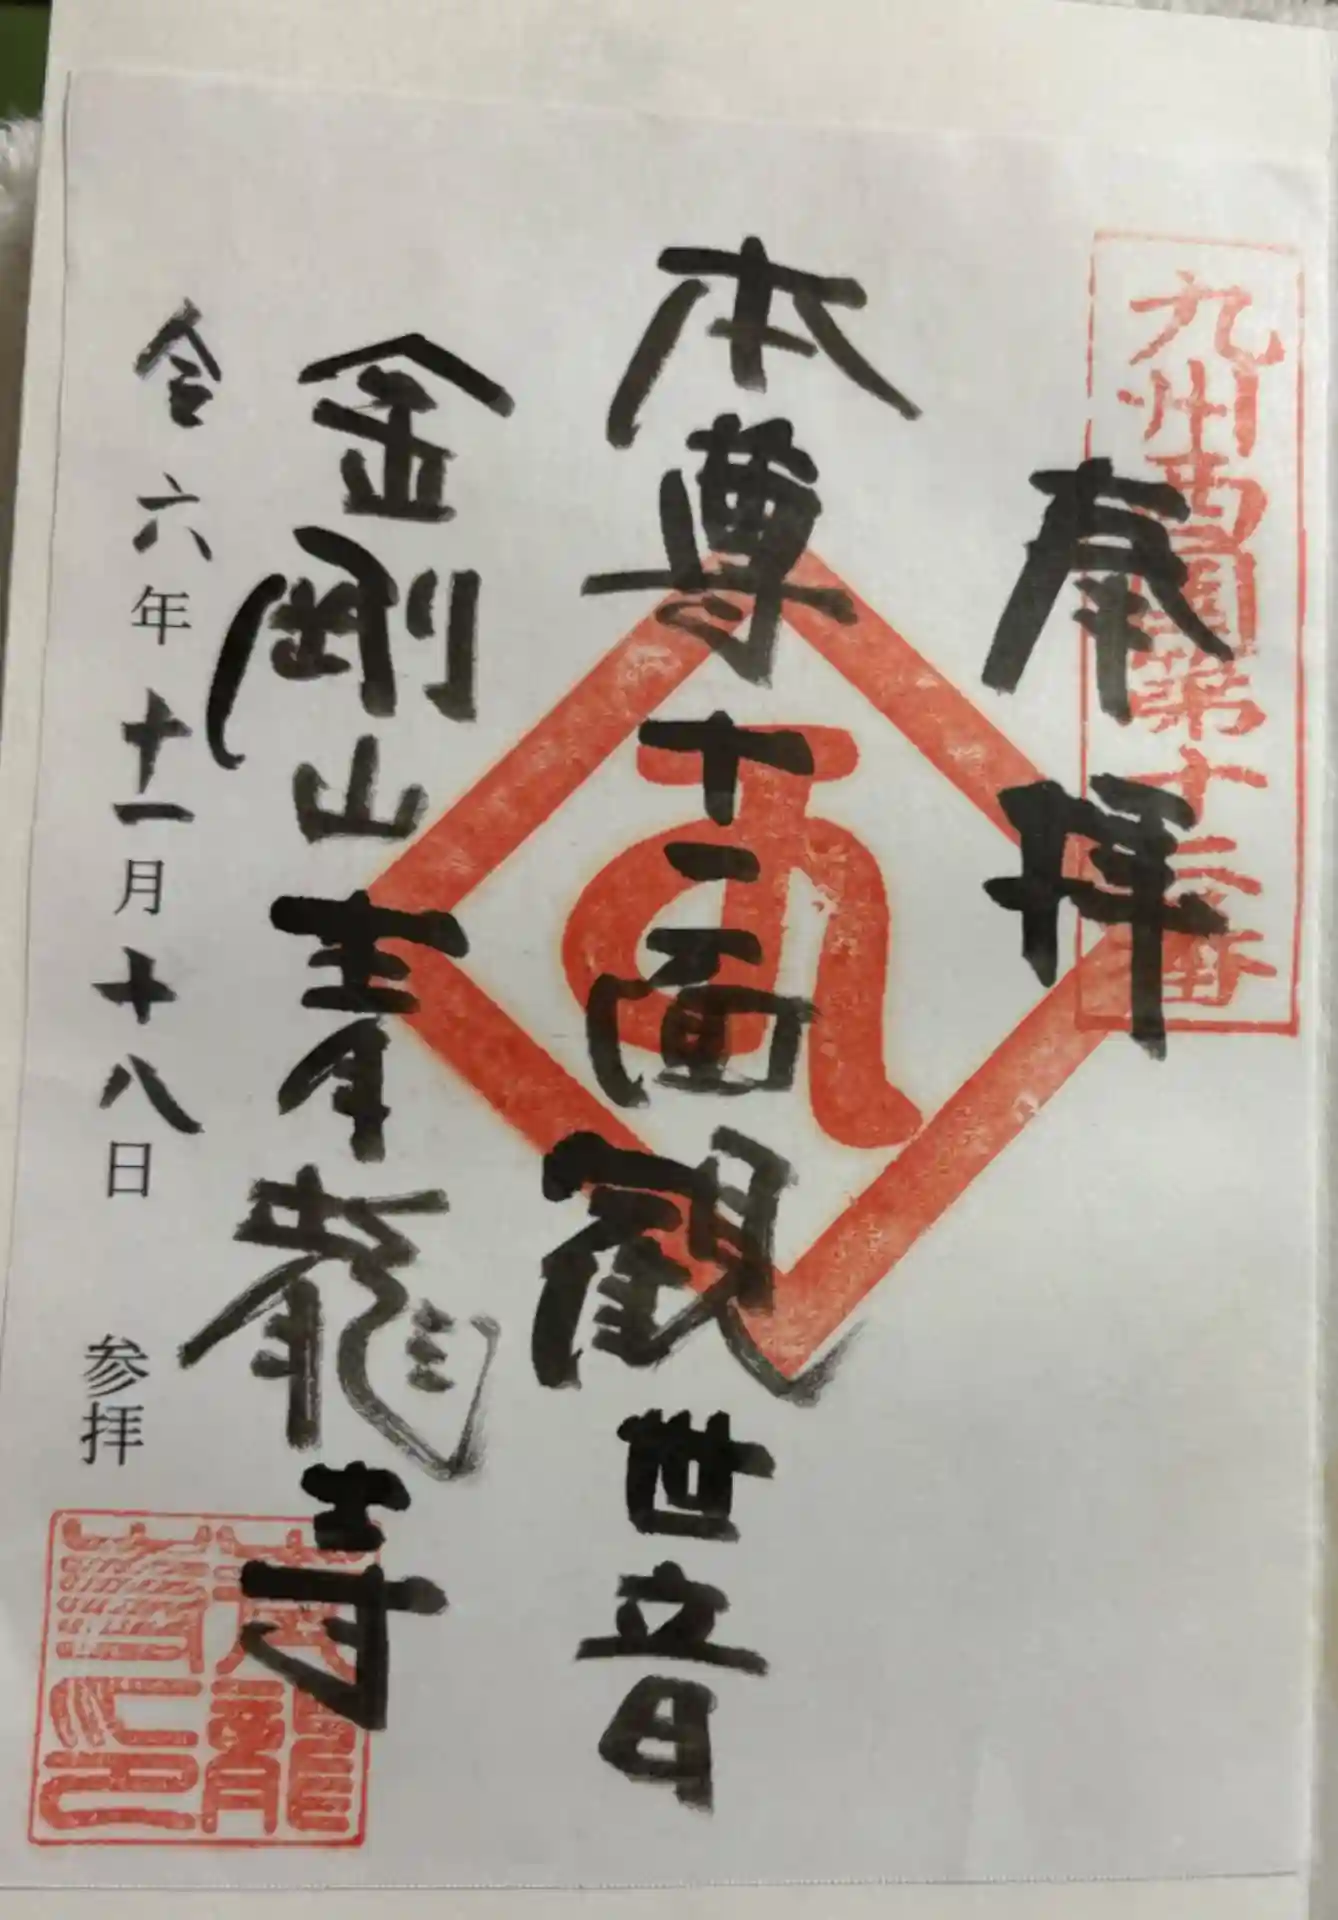 九州西国第十二番
奉拝
本尊十一面観世音
金剛山青龍寺
令六年十一月十八日 参拝